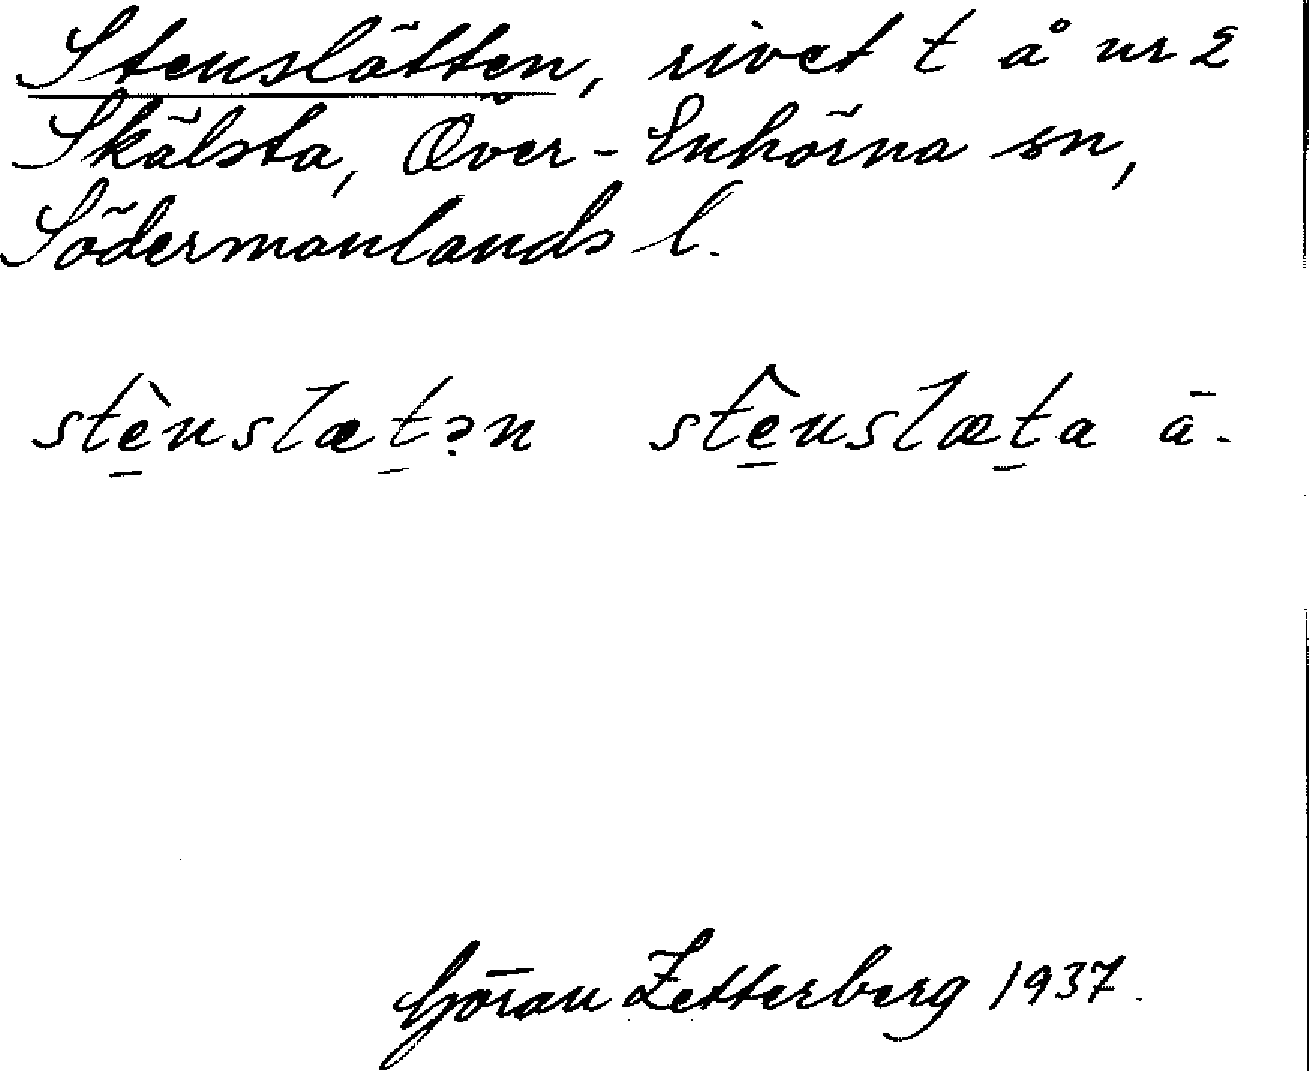 Stenslätten, rivet t å nr 2
Skälsta, Över-Enhörna sn,
Södermanlands l.
stè̠nslæt̠ən stê̠nslæt̠a ā.
Göran Zetterberg 1937.